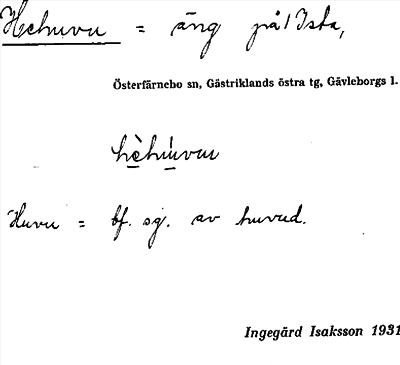 Hehuvu = äng på Ista,
Österfärnebo sn, Gästriklands östra tg, Gävleborgs l.
hèhúvu
Huvu = bf. sg. av huvud.
Ingegärd Isaksson 1931